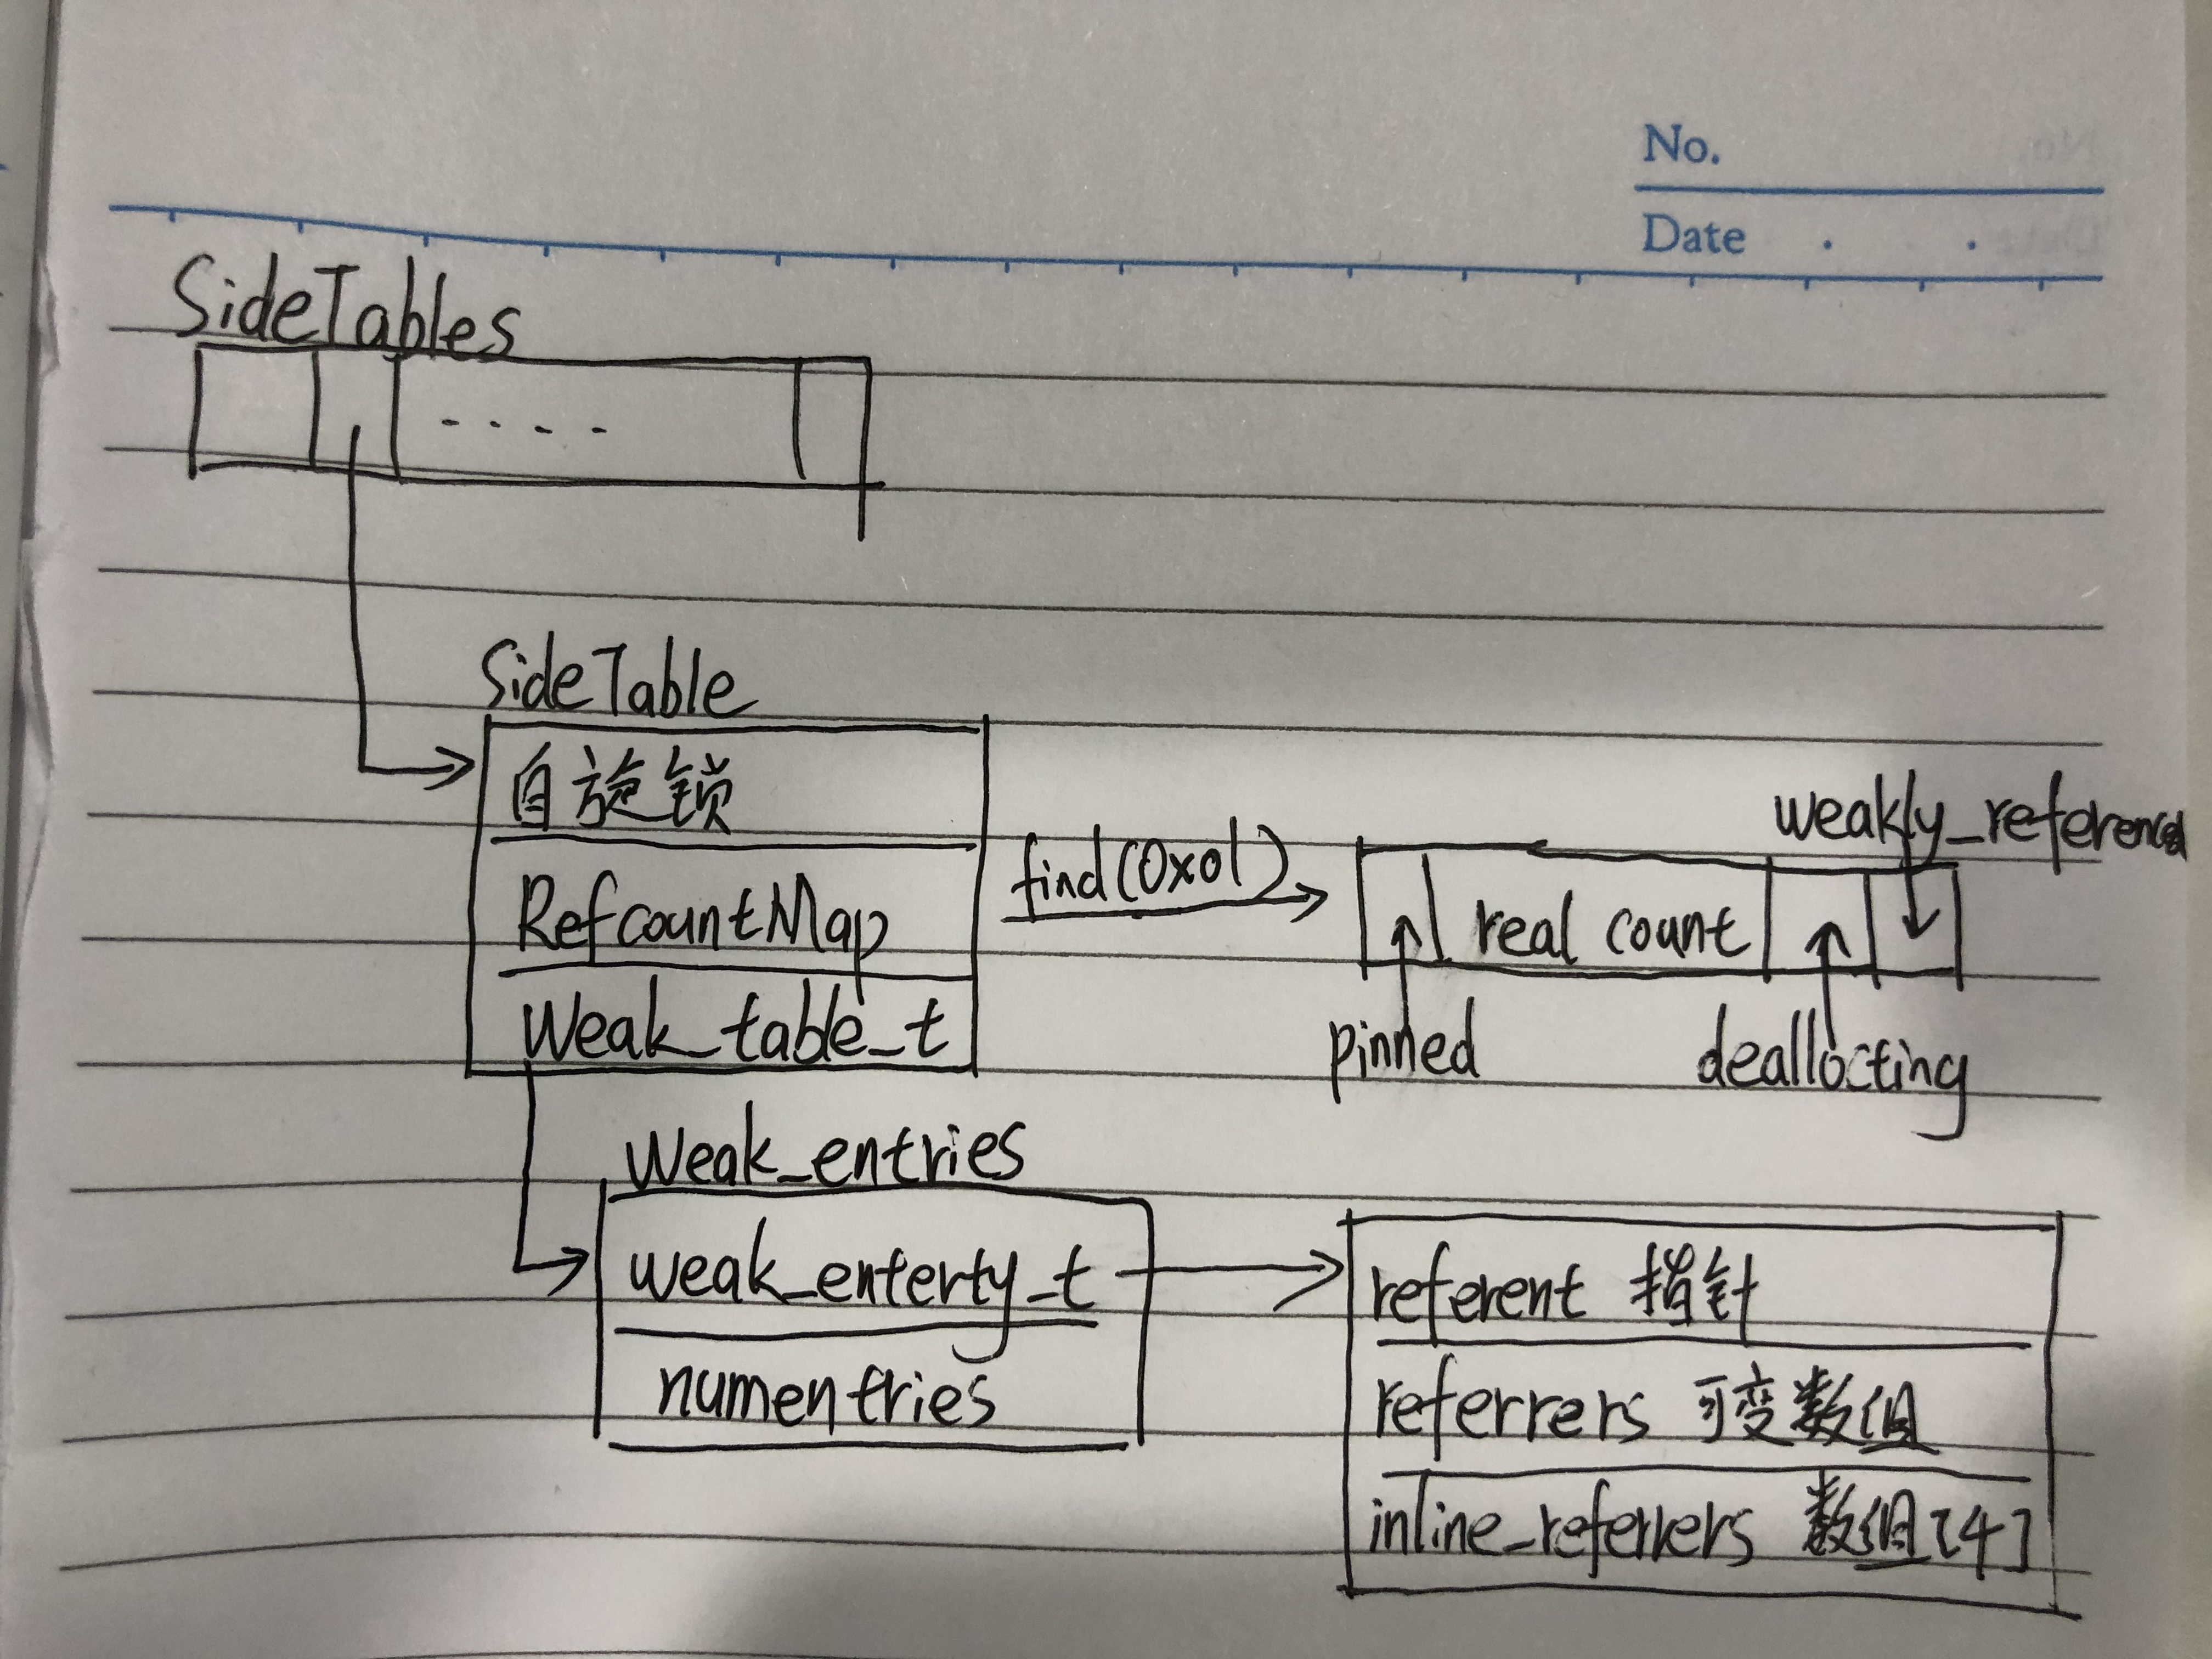 No.
Date
SideTables
SideTable
自旋锁
RefcountMap
Weak_table_t
find(0x01)
weakly_referenced
real count
pinned
deallocting
Weak_entries
weak_enterty_t
numentries
referent 指针
referrers 可变数组
inline_referrers 数组[4]